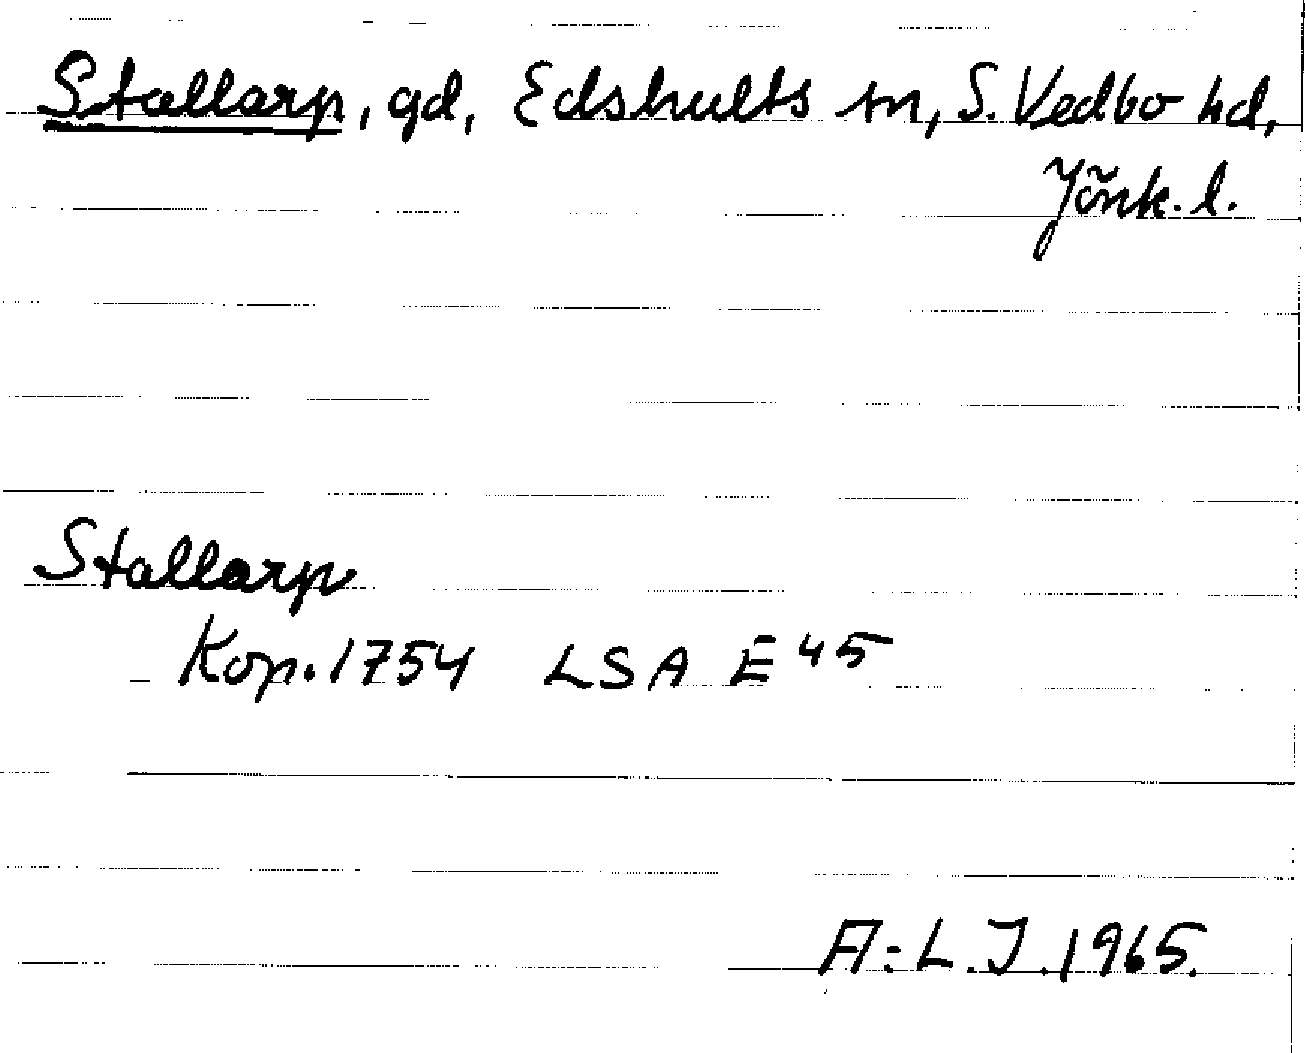 Stallarp, gd, Edshults sn, S. Vedbo hd,
Jönk. l.
Stallarp
Kop. 1754 LSA E 45
A:L.J. 1965.